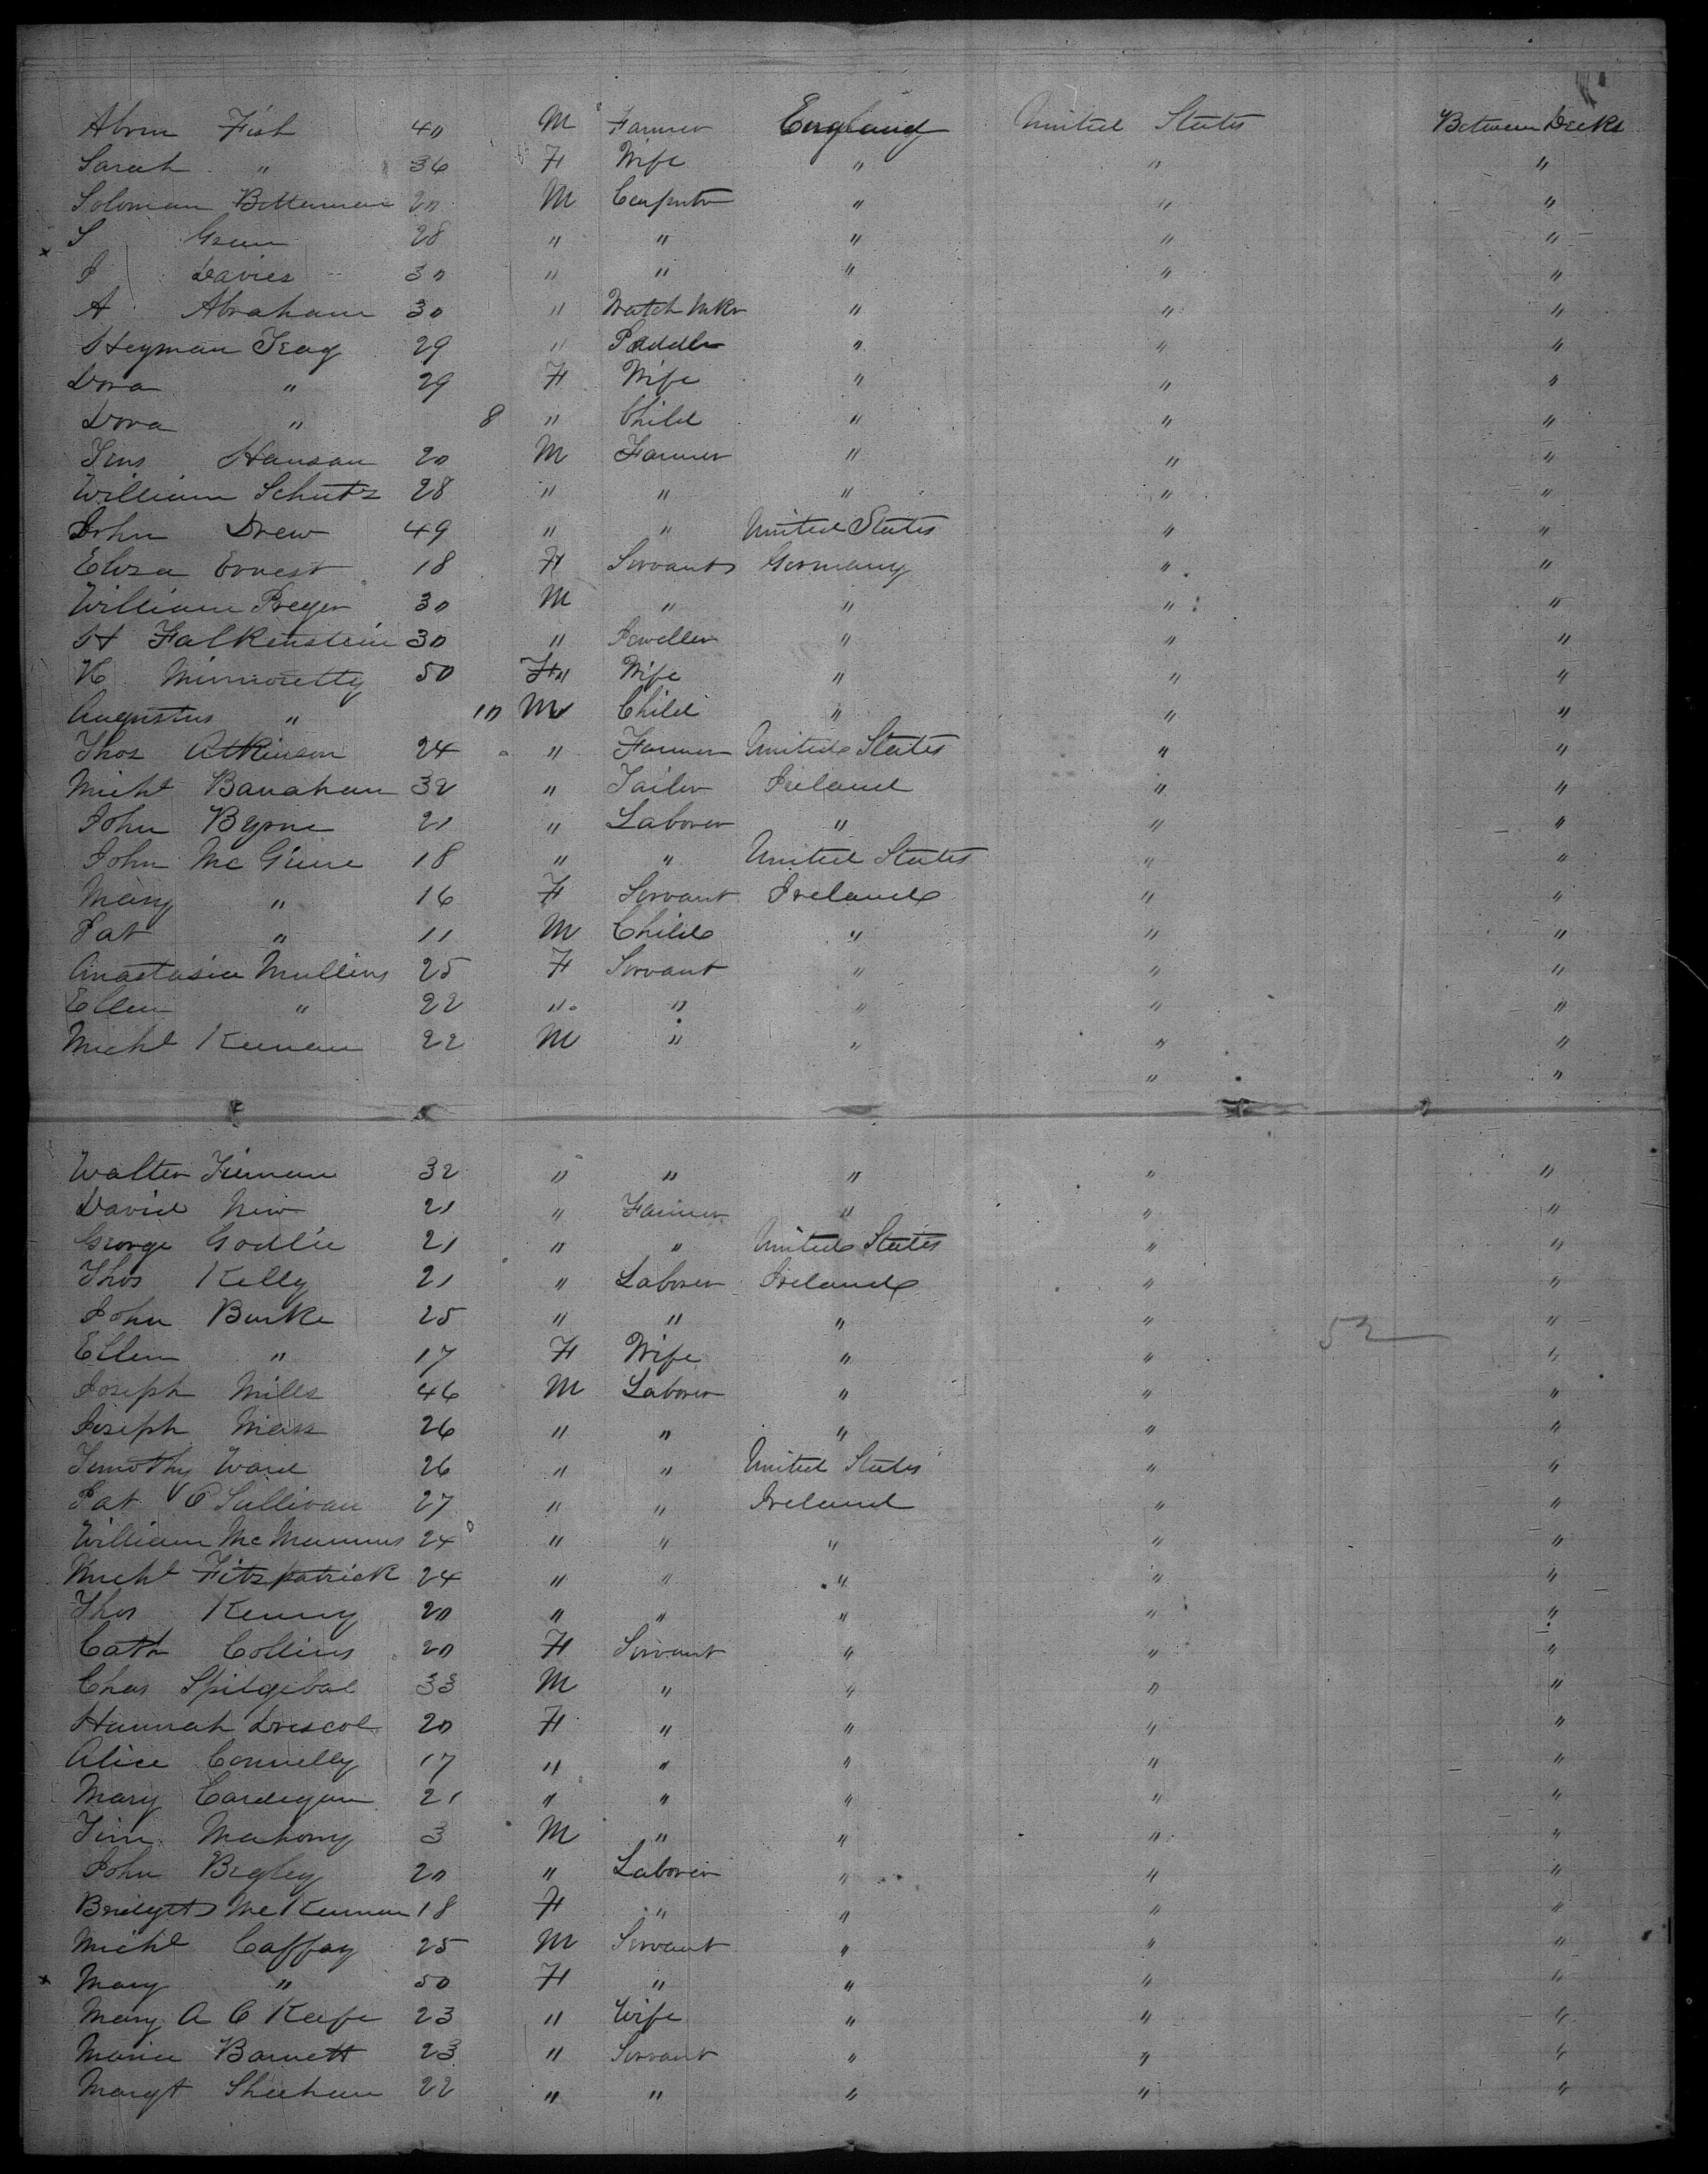 Abrm Fish 40 M Farmer England United States Between Decks
Sarah " 36 F Wife " " "
Soloman Betterman 20 M Carpenter " " "
S Green 28 " " " " "
J Davies 30 " " " " "
A Abraham 30 " Watch Mkr " " "
Heyman Izag 29 " Peddler " " "
Dora " 29 F Wife " " "
Dora " 8 " Child " " "
Jens Hansan 20 M Farmer " " "
William Schutz 28 " " " " "
John Drew 49 " " United States " "
Eliza Ernest 18 F Servant Germany " "
William Preger 30 M " " " "
H Falkenstein 30 " Jeweller " " "
K 50 F " Wife " " "
Augustus " 10 M Child " " "
Thos Atkinson 24 " Farmer United States " "
Michl Banahan 32 " Tailor Ireland " "
John Byrne 21 " Laborer " " "
John McGuire 18 " " United States " "
Mary " 16 F Servant Ireland " "
Pat " 11 M Child " " "
Anastasia Mullins 25 F Servant " " "
Ellen " 22 " " " " "
Michl Keenan 22 M " " " "
" "
Walter Tiernan 32 " " " " "
David New 21 " Farmer " " "
George Godlie 21 " " United States " "
Thos Kelly 21 " Laborer Ireland " "
John Burke 25 " " " " 52 "
Ellen " 17 F Wife " " "
Joseph Mills 46 M Laborer " " "
Joseph 26 " " " " "
Timothy Ward 26 " " United States " "
Pat O Sullivan 27 " " Ireland " "
William McManus 24 " " " " "
Michl Fitzpatrick 24 " " " " "
Thos Kenny 20 " " " " "
Cath Collins 20 F Servant " " "
Chas 33 M " " " "
Hannah Driscol 20 F " " " "
Alice Connelly 17 " " " " "
Mary Cardigan 21 " " " " "
Tim Mahony 3 M " " " "
John Begley 20 " Laborer " " "
Bridgett McKiernan 18 F " " " "
Michl Caffay 25 M Servant " " "
x Mary " 50 F " " " "
Mary A O Keefe 23 " Wife " " "
Maria Barnett 23 " Servant " " "
Margt Sheehan 22 " " " " "